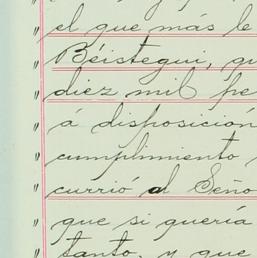 " el que más le
" Béistegui, qu
" diez mil pe
" á disposición
" cumplimiento
" currió al Seño
" que si quería
" tanto, y que